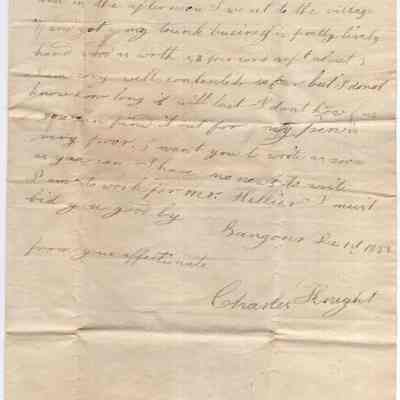 and in the afternoon I went to the village
I have got my trunk business is pretty lively
hand who is worth
I am very well contented so far but I do not
know how long it will last I dont know
you can find it out for my pen is
very poor. I want you to write as soon
as you can I have no news to write
I am to work for Mr. Hellier I must
bid you good by
Bangour Dec 1st
from your affectionate
Charles Knight